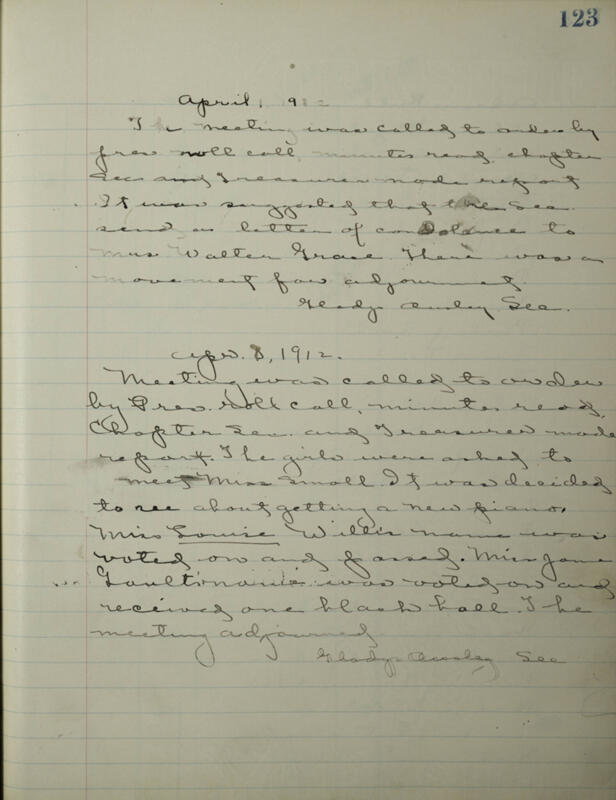 123
April, 912
The meeting was called to order by
pres roll call, minutes read, chapter
Sec and Treasurer made report
It was suggested that the Sec.
send a letter of condolence to
Mrs. Walter Grace. There was a
movement for adjourment
Gladys Ansley Sec.
Apr. 8, 1912.
Meeting was called to order
by Pres. Roll call, minutes read,
Chapter Sec. and Treasurer made
report. The girls were asked to
meet Miss Small. It was decided
to see about getting a new piano,
Miss Louise Willis name was
voted on and passed. Miss Jane
was voted on and
received one black ball. The
meeting adjourned
Gladys Ansley Sec